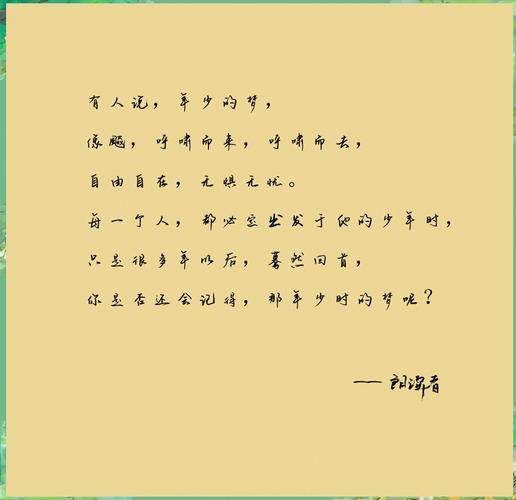 有人说，年少的梦，
像飚，呼啸而来，呼啸而去，
自由自在，无惧无忧。
每一个人，都必定出发于他的少年时，
只是很多年以后，蓦然回首，
你是否还会记得，那年少时的梦呢？